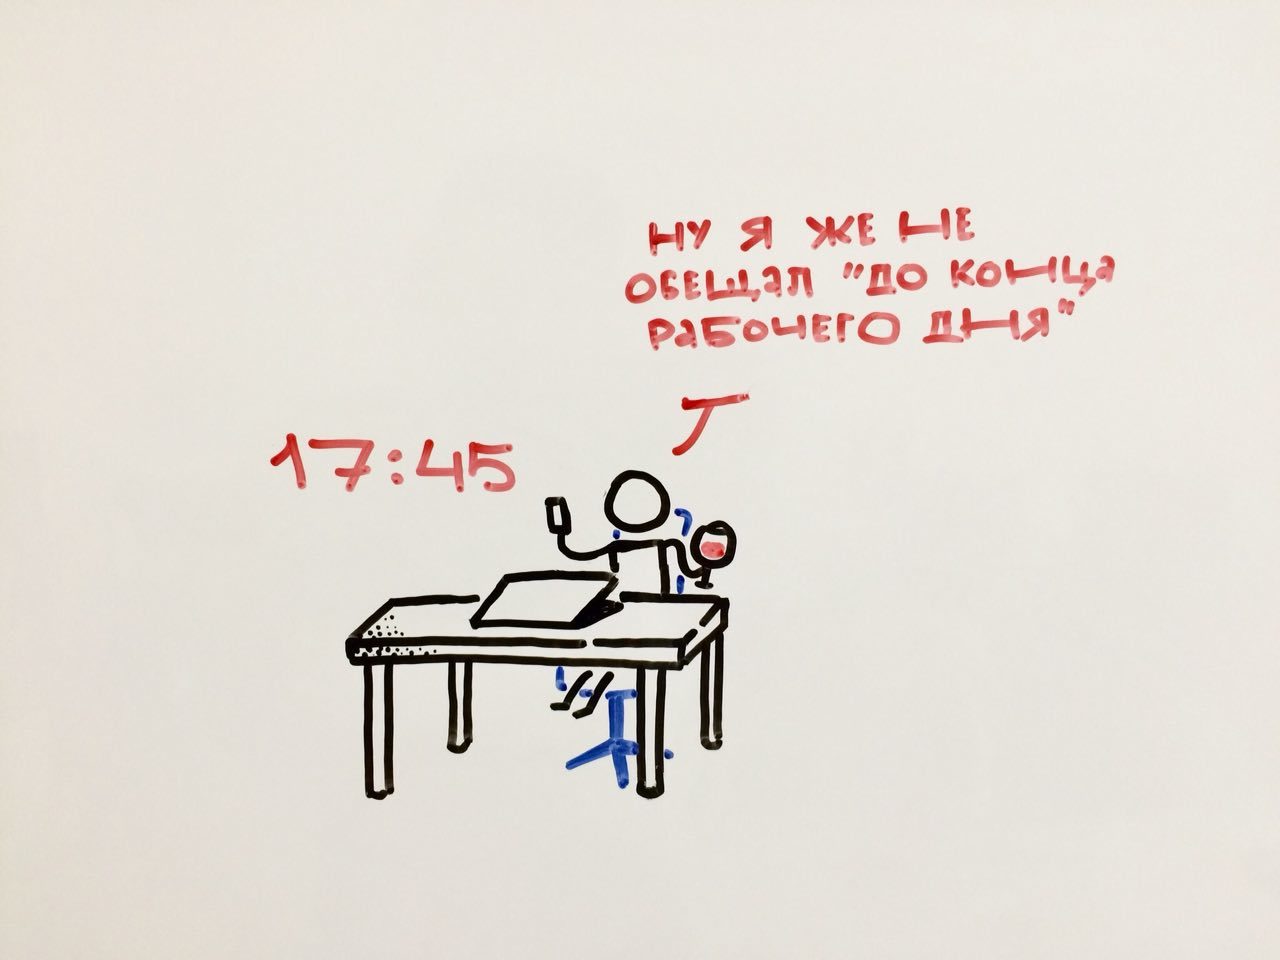 НУ Я ЖЕ НЕ
ОБЕЩАЛ "ДО КОНЦА
РАБОЧЕГО ДНЯ"
17:45